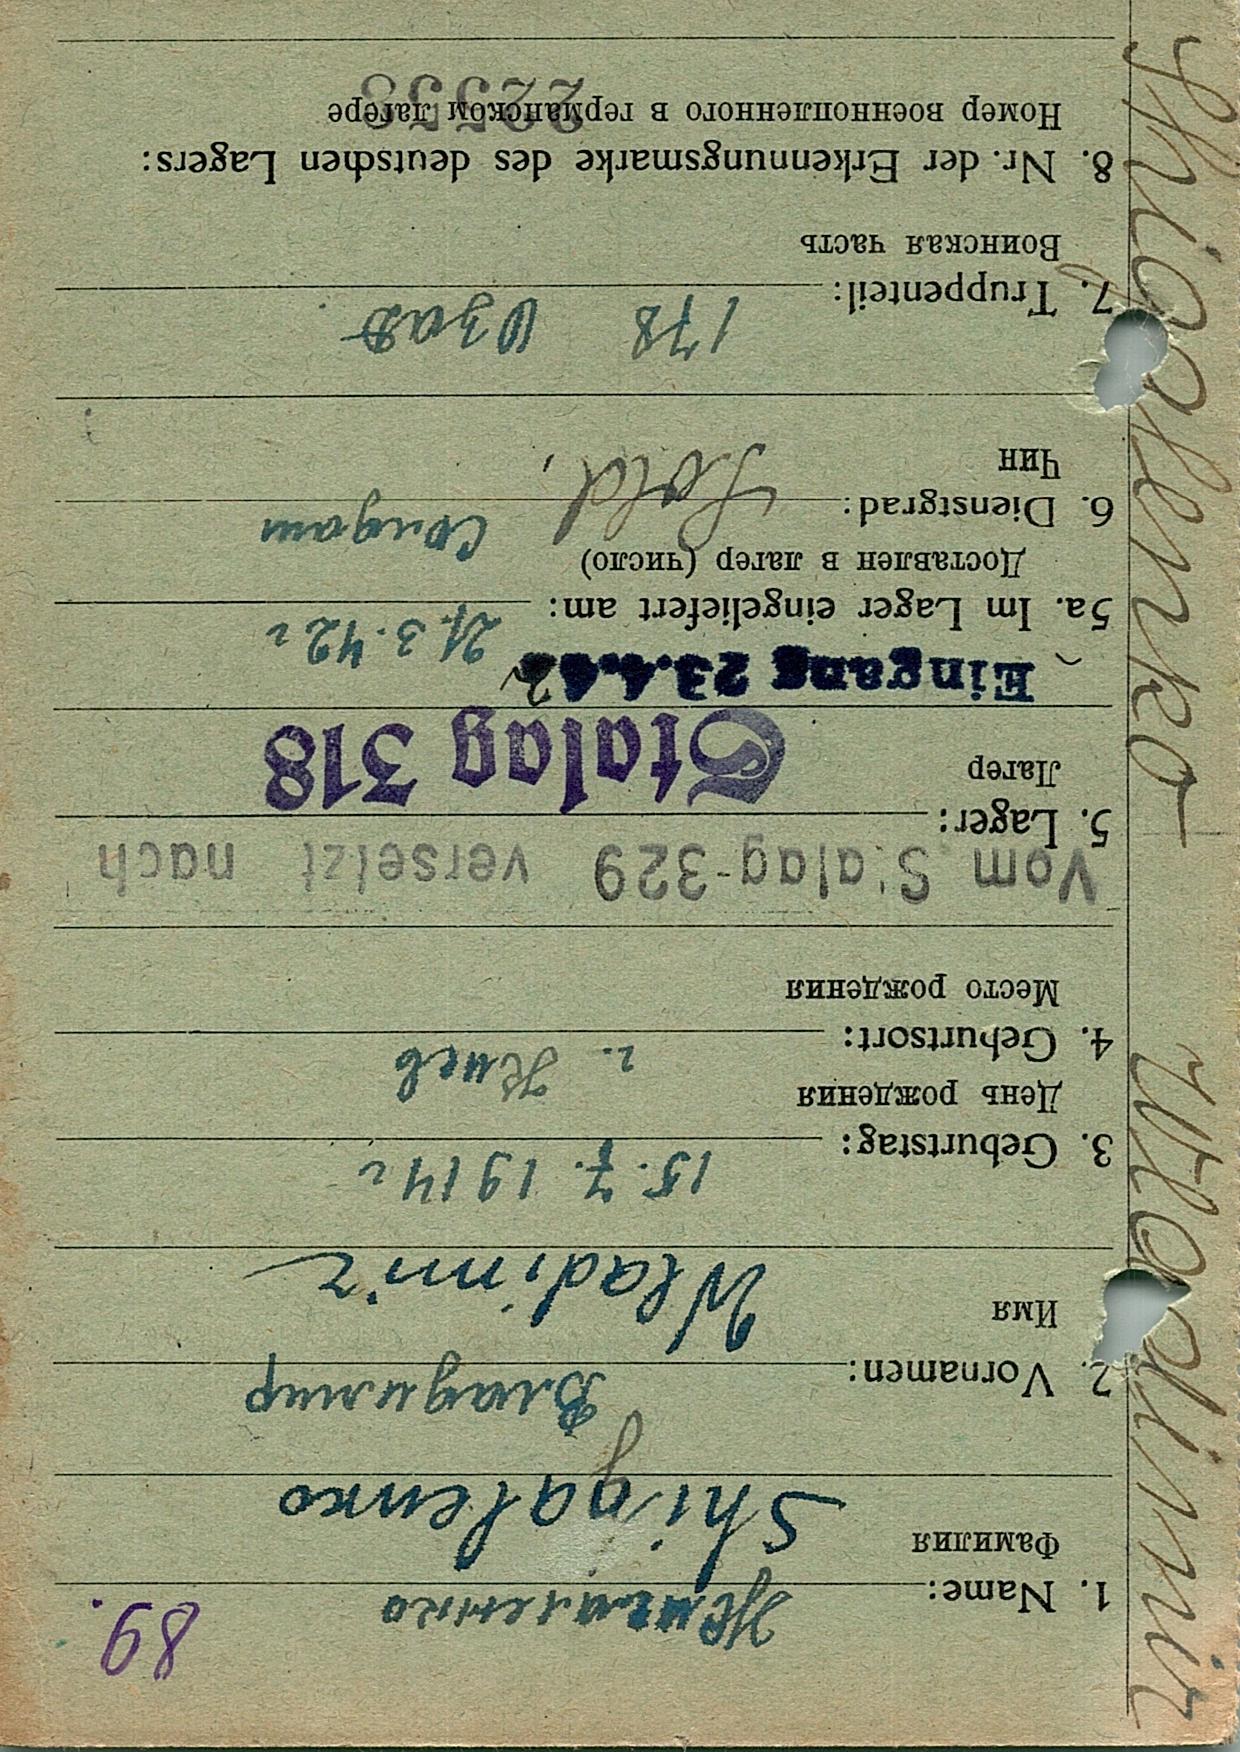 89.
Жигаленко
1. Name:
Фамилия
Shigalenko
Владимир
2. Vornamen:
Имя
Wladimir
15. 7. 1914 г
3. Geburtstag:
День рождения
г. Киев
4. Geburtsort:
Место рождения
Vom Stalag 329 versetzt nach
5. Lager:
Лагер
Stalag 318
Eingang 23.4.42
21.3.42 г
5a. Im Lager eingeliefert am:
Доставлен в лагер (число)
Солдат
6. Dienstgrad:
Чин
Sold.
178 ОЗАД
7. Truppenteil:
Воинская часть
8. Nr. der Erkennungsmarke des deutschen Lagers:
Номер военнопленного в германском лагере
22553
Shigalenko Wladimir